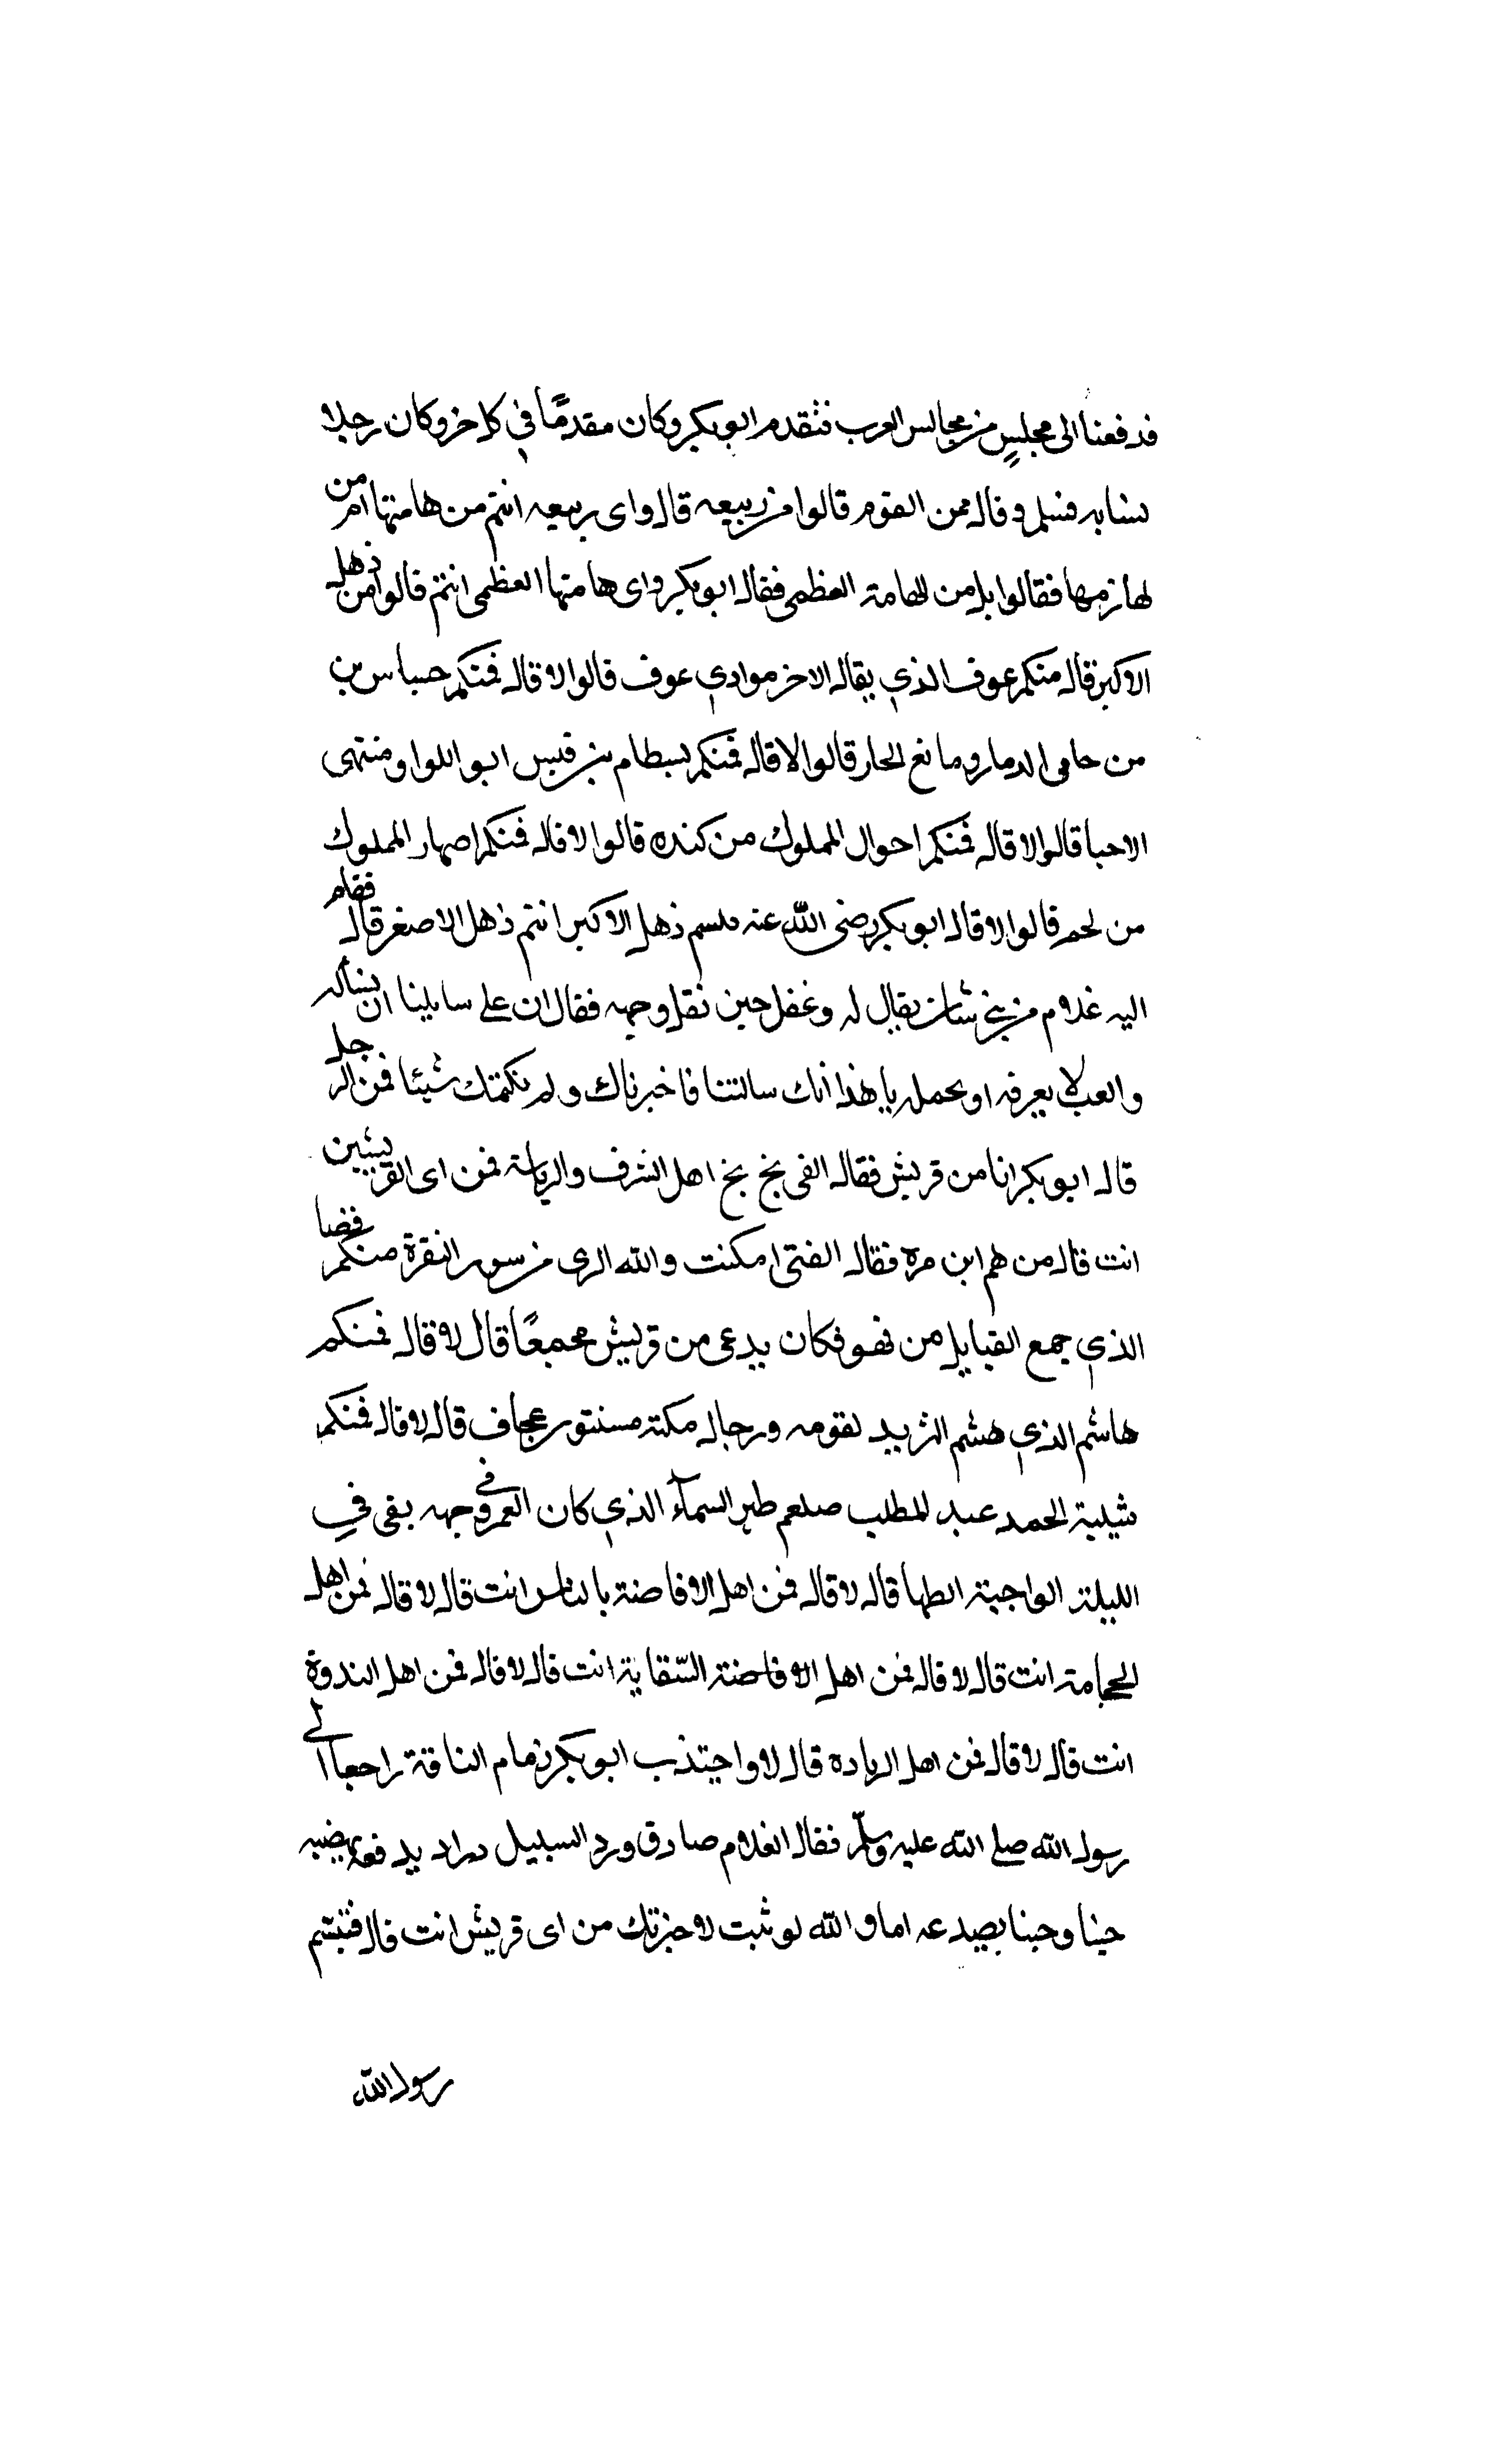 فدفعنا الى مجلسٍ من مجالس العرب فتقدم ابو بكر وكان مقدمًا في كل خر وكان رجلا
نسابه فسلم وقال ممن القوم قالوا من ربيعه قال واى ربيعه انتم من هامتها ام من
لهازمها فقالوا بل من الهامة العظمى فقال ابو بكر واى هامتها العظمى انتم قالوا من ذهل
الاكبر قال منكم عوف الذي يقال لاحر بوادي عوف قالوا لا قال فمنكم جساس بن
من حامى الدمار ومانع الجار قالوا لا قال فمنكم بسطام بن قيس ابو اللوا ومنتهى
الاحيا قالوا لا قال فمنكم احوال المملوك من كنده قالوا لا قال فمنكم اصهار المملوك
من لحم قالوا لا قال ابو بكر رضى الله عنه فلستم ذهل الاكبر انتم ذهل الاصغر قال فقام
اليه غلام من بني شان يقال له وغفل حين نقل وجهه فقال ان على سايلينا ان نساله
والعبلا يعرفه او يحمله يا هذا انك سالتنا فاخبرناك ولم نكتمك شيئا فمن الرجل
قال ابو بكر انا من قريش فقال الفى بخ بخ اهل الشرف والرياسة فمن اى القريشين
انت قال من هم ابن مره فقال الفتى امكنت والله الرى من سور النقرة منكم فضا
الذي جمع القبايل من فهو فكان يدعى من قريش مجمعًا قال لا قال فمنكم
هاشم الذي هشم الثريد لقومه ورجال مكة مسنتور عجاف قال لا قال فمنكم
شيبة الحمد عبد المطلب صلعم طير السمآء الذي كان القمر في وجهه بقى في
الليلة الواجية الطها قال لا قال فمن اهل الافاضة بالناس انت قال لا قال فمن اهل
الحجامة انت قال لا قال فمن اهل الافاضة السّقاية انت قال لا قال فمن اهل الندوة
انت قال لا قال فمن اهل الرياده قال لا واجتذب ابو بكر زمام الناقة راجعا الى
رسول الله صلى الله عليه وسلّم فقال الغلام صادق ورد السبيل دراد يدفعه يهضبه
حينا وحينا يصدعه اما والله لو ثبت لاخبرتك من اى قريش انت قال فتبسّم
رسول الله